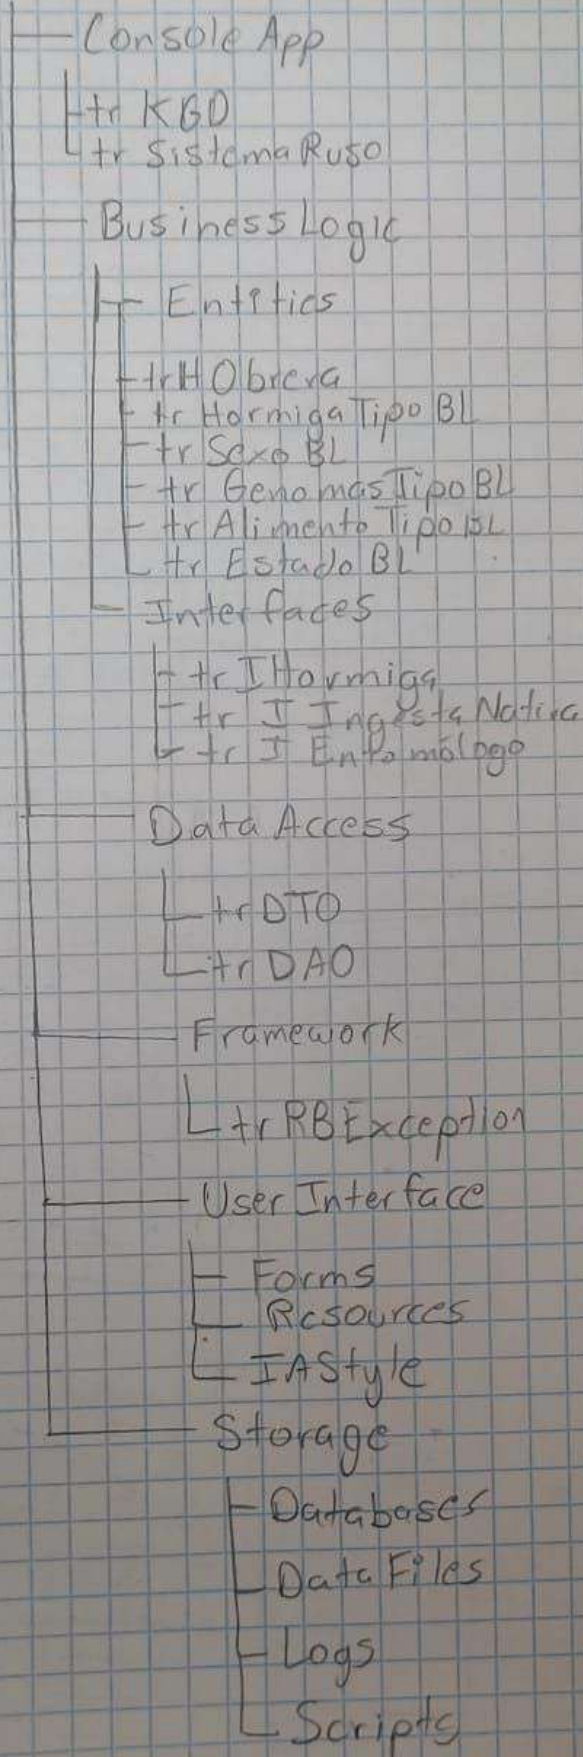 Console App
tr KGD
tr SistemaRuso
Business Logic
Entities
trHObrera
tr HormigaTipoBL
tr SexoBL
tr GenomasTipoBL
tr AlimentoTipoBL
tr EstadoBL
Interfaces
tr IHormiga
tr I IngestaNativa
tr I Entomólogo
Data Access
tr DTO
tr DAO
Framework
tr RBException
User Interface
Forms
Resources
IAStyle
Storage
Databases
Data Files
Logs
Scripts